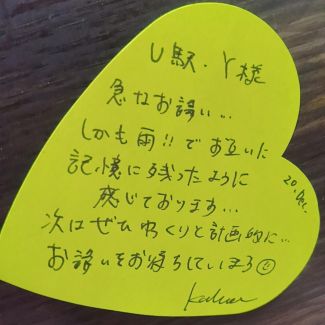 U駅・Y様
急なお誘い…
しかも雨!!でお互いに
記憶に残ったように
感じております…
次はぜひゆっくりと計画的に…
お誘いをお待ちしていまする
20. Dec.